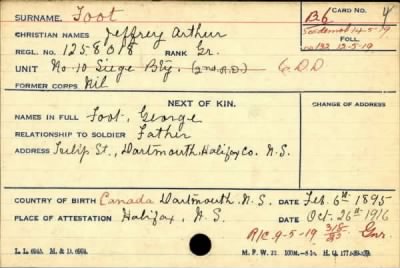 SURNAME. Foot
CARD NO.
B6 4
CHRISTIAN NAMES Jeffrey Arthur
Sos demob 14-5-19
REGL. NO. 1258018 RANK Gr.
FOLL.
no 132 12-5-19
UNIT No. 10 Siege Bty. (2nd R.D.) 6 DD
FORMER CORPS Nil
NEXT OF KIN.
CHANGE OF ADDRESS
NAMES IN FULL Foot, George
RELATIONSHIP TO SOLDIER Father
ADDRESS Tulip St., Dartmouth, Halifax Co. N.S.
COUNTRY OF BIRTH Canada Dartmouth, N.S. DATE Feb. 6th 1895
PLACE OF ATTESTATION Halifax, N.S. DATE Oct. 26th 1916
R/C 9-5-19 Gnr.
L. L. 6945. M. & D. 6994. M. F. W. 22.